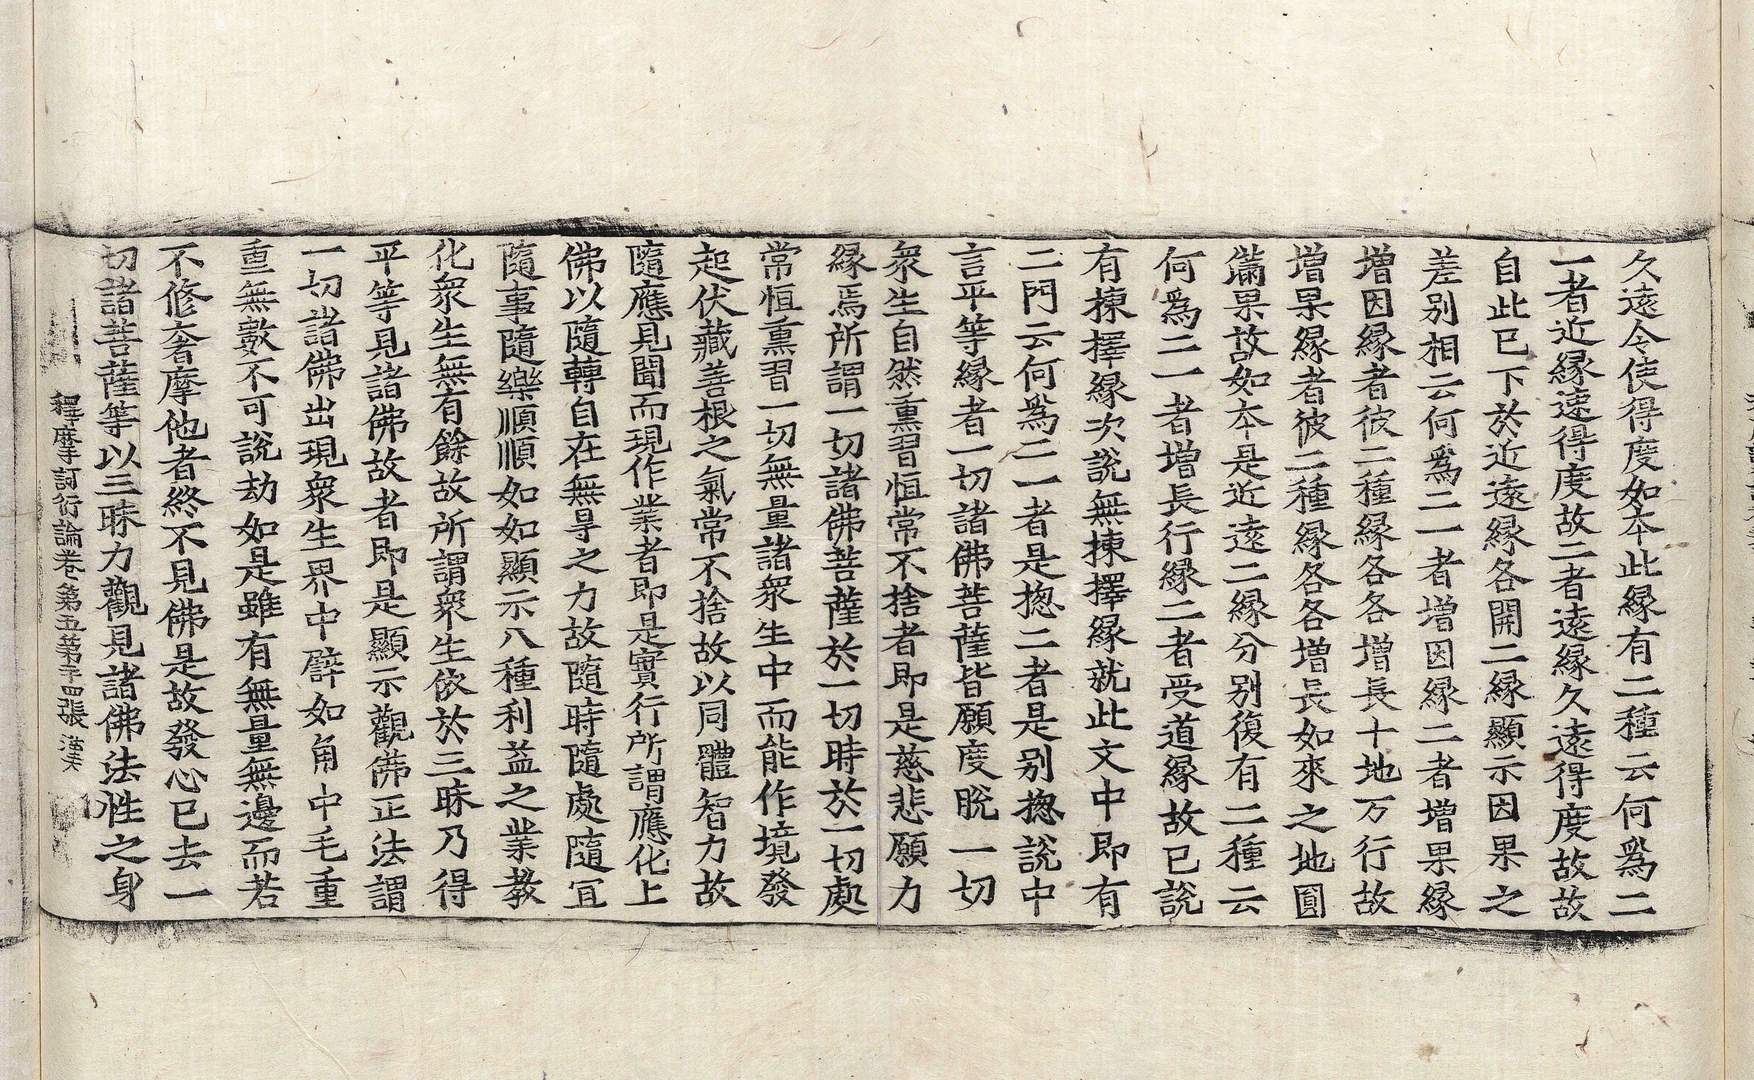 久遠令使得度如本此縁有二種云何爲二
一者近縁速得度故二者遠縁久遠得度故故
自此已下於近遠縁各開二縁顯示因果之
差別相云何爲二一者增因縁二者增果縁
增因縁者彼二種縁各各增長十地万行故
增果縁者彼二種縁各各增長如來之地圓
滿果故如本是近遠二縁分別復有二種云
何爲二一者增長行縁二者受道縁故已說
有揀擇縁次說無揀擇縁就此文中即有
二門云何爲二一者是揔二者是別揔說中
言平等縁者一切諸佛菩薩皆願度脫一切
衆生自然熏習恒常不捨者即是慈悲願力
縁焉所謂一切諸佛菩薩於一切時於一切處
常恒熏習一切無量諸衆生中而能作境發
起伏藏善根之氣常不捨故以同體智力故
隨應見聞而現作業者即是實行所謂應化上
佛以隨轉自在無㝵之力故隨時隨處隨冝
隨事隨樂順順如如顯示八種利益之業教
化衆生無有餘故所謂衆生依於三昧乃得
平等見諸佛故者即是顯示觀佛正法謂
一切諸佛出現衆生界中譬如角中毛重
重無數不可說劫如是雖有無量無邊而若
不修奢摩他者終不見佛是故發心已去一
切諸菩薩等以三昧力觀見諸佛法性之身
釋摩訶衍論卷第五第二十四張 漢